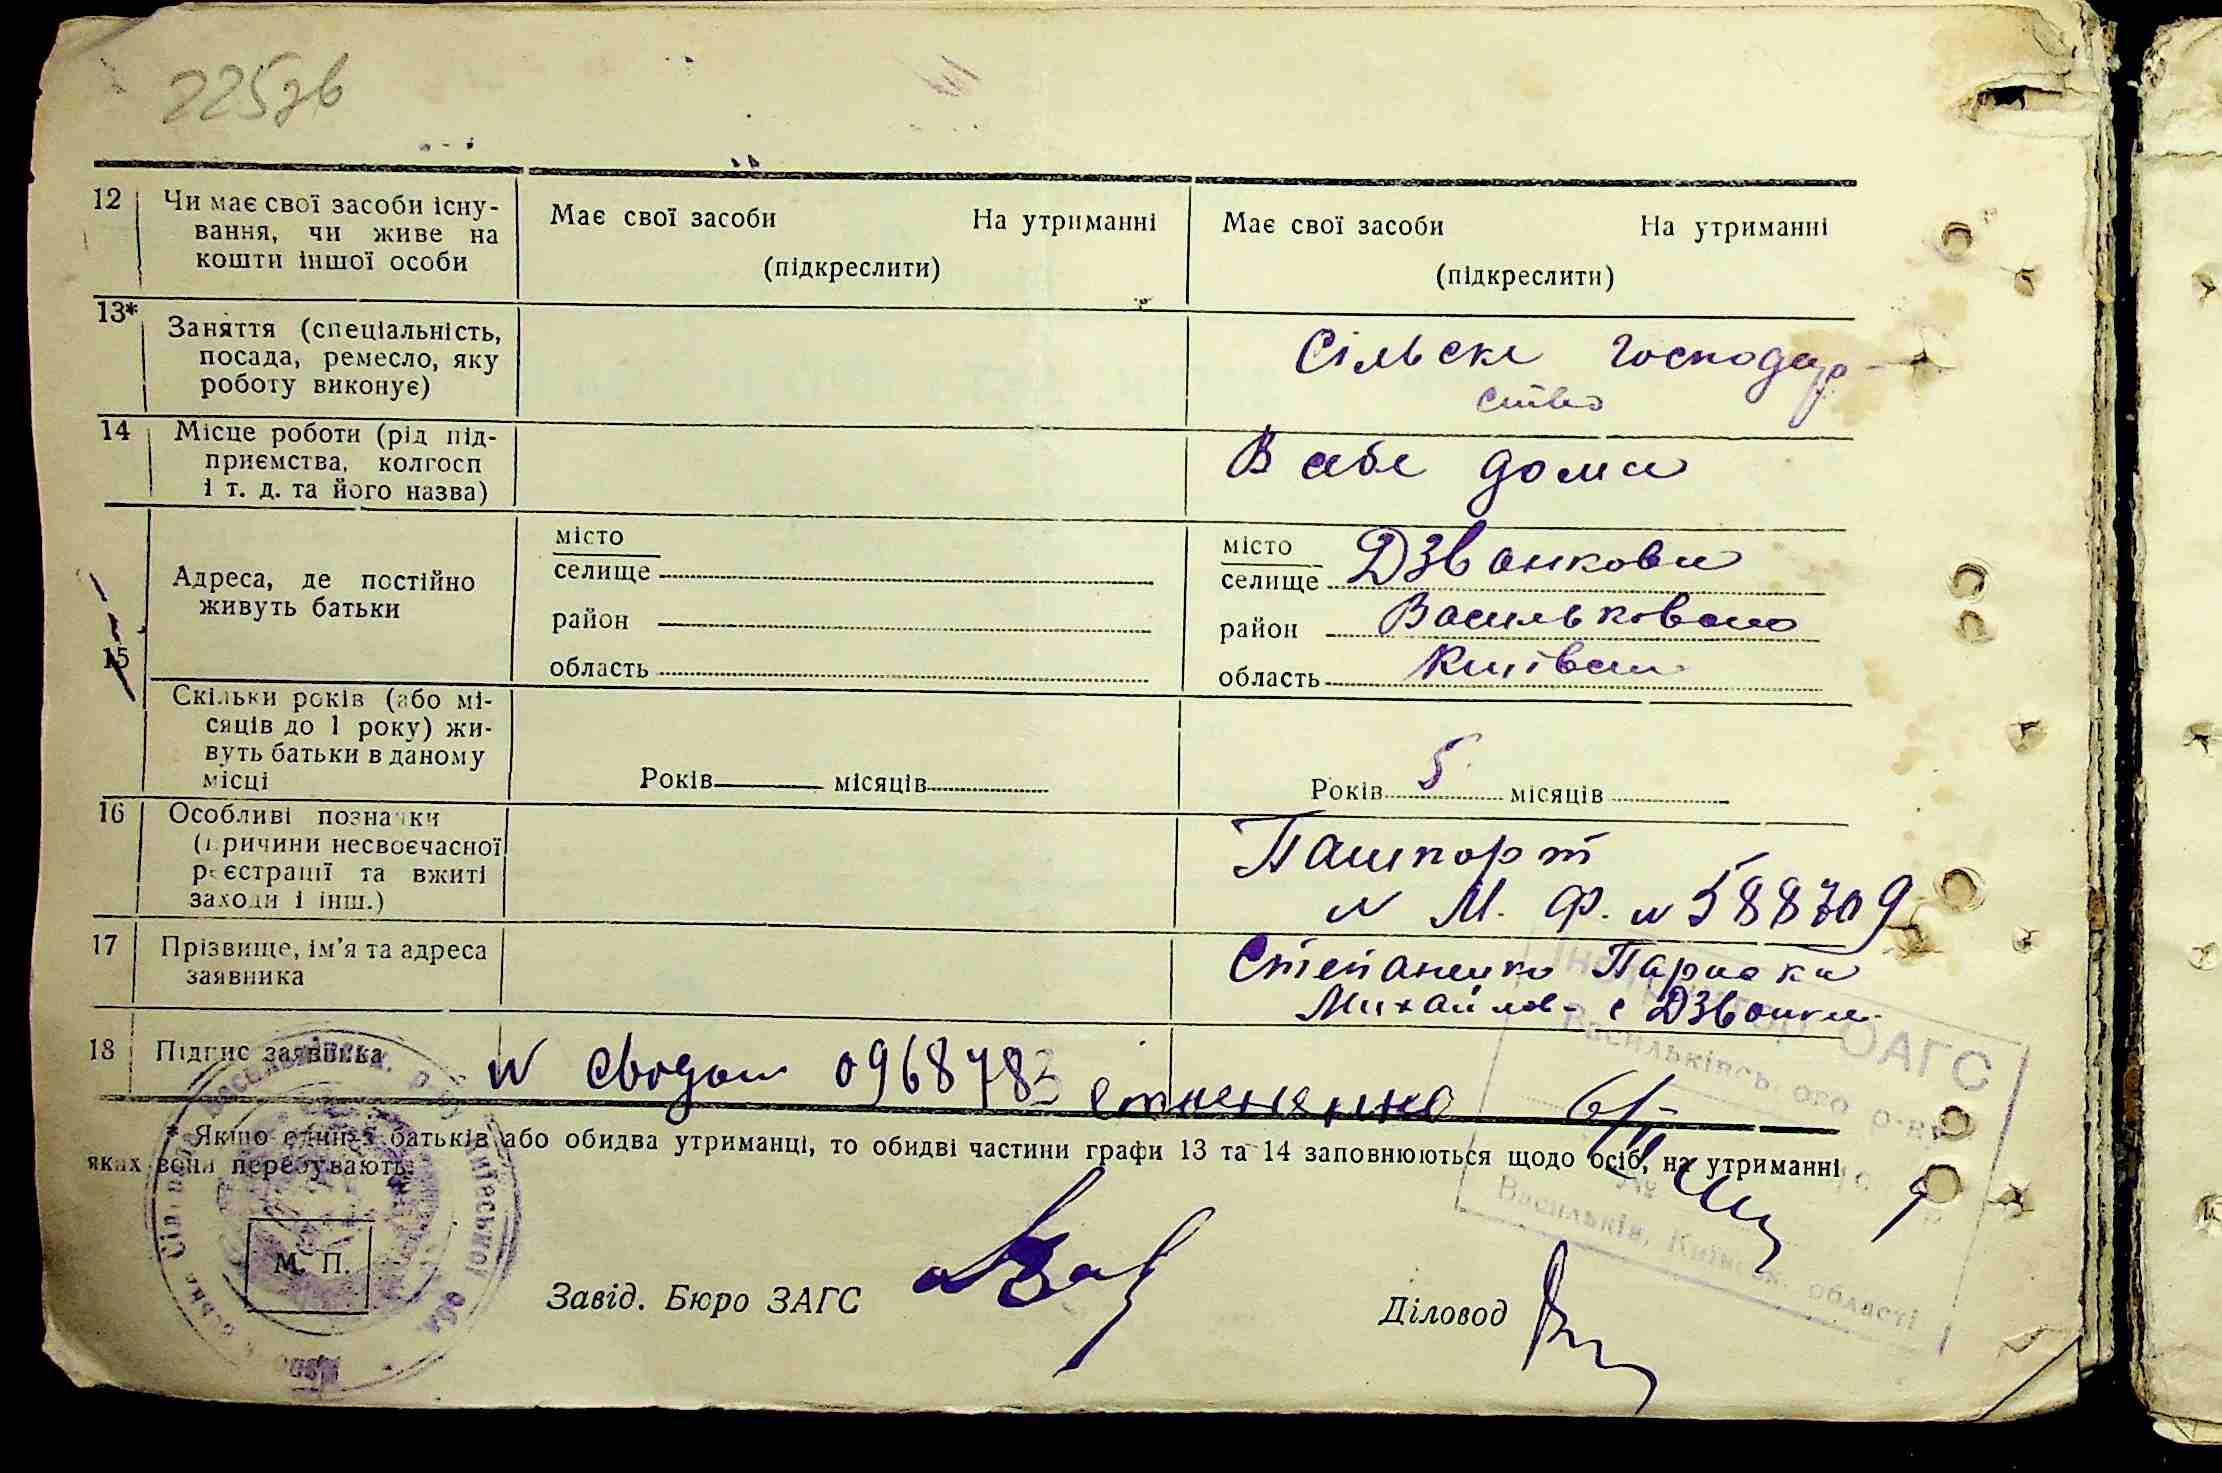 225зв
12 Чи має свої засоби існу-
вання, чи живе на
кошти іншої особи
Має свої засоби На утриманні
(підкреслити)
Має свої засоби На утриманні
(підкреслити)
13* Заняття (спеціальність,
посада, ремесло, яку
роботу виконує)
Сільске господар-
ство
14 Місце роботи (рід під-
приємства, колгосп
і т. д. та його назва)
В себе дома
15 Адреса, де постійно
живуть батьки
місто
селище
район
область
місто
селище Дзвонкови
район
область
Скільки років (або мі-
сяців до 1 року) жи-
вуть батьки в даному
місці
Років місяців
Років 5 місяців
16 Особливі позначки
(причини несвоєчасної
реєстрації та вжиті
заходи і інш.)
Пашпорт
N М. Ф. N 588709
17 Прізвище, ім'я та адреса
заявника
Степаненко Параска
Михайлов- с Дзвонки
18 Підпис заявника
N 0968783
* Якщо один з батьків або обидва утриманці, то обидві частини графи 13 та 14 заповнюються щодо осіб, на утриманні
яких вони перебувають.
М. П.
Завід. Бюро ЗАГС
Діловод
ОАГС
Васильківського р-ну
Васильків, Київськ. області